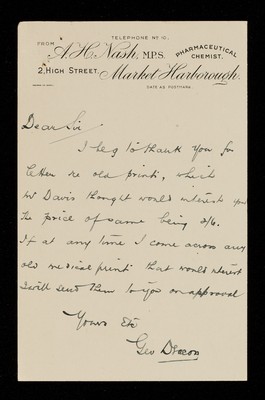 TELEPHONE No 10.
FROM A. H. Nash, M.P.S. PHARMACEUTICAL CHEMIST.
2, HIGH STREET, Market Harborough.
DATE AS POSTMARK.
Dear Sir
I beg to thank you for
letter re old prints, which
Mr Davis thought would interest you
the price of same being 2/6.
If at any time I come across any
old medical prints that would interest
I will send them to you on approval
Yours etc
Geo